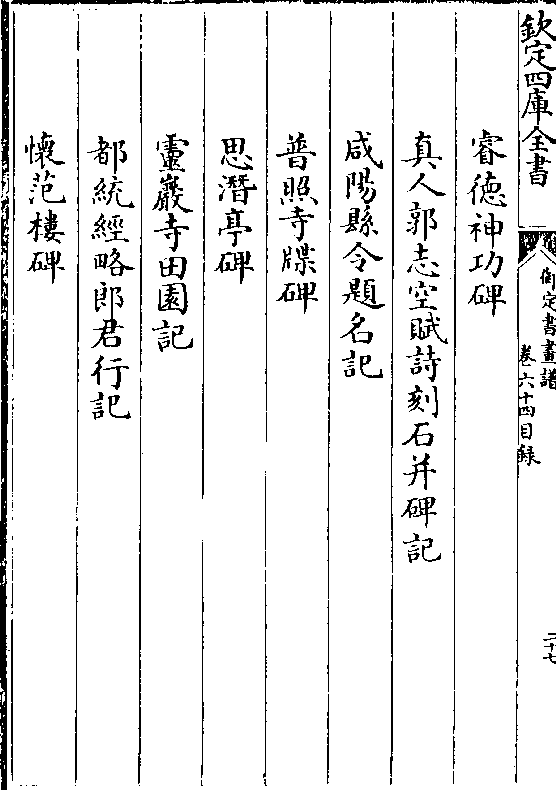 欽定四庫全書
御定書畫譜
卷六十四目録
二十七
睿德神功碑
真人郭志空賦詩刻石并碑記
咸陽縣令題名記
普照寺牒碑
思潛亭碑
靈巖寺田園記
都統經略郎君行記
懷范樓碑